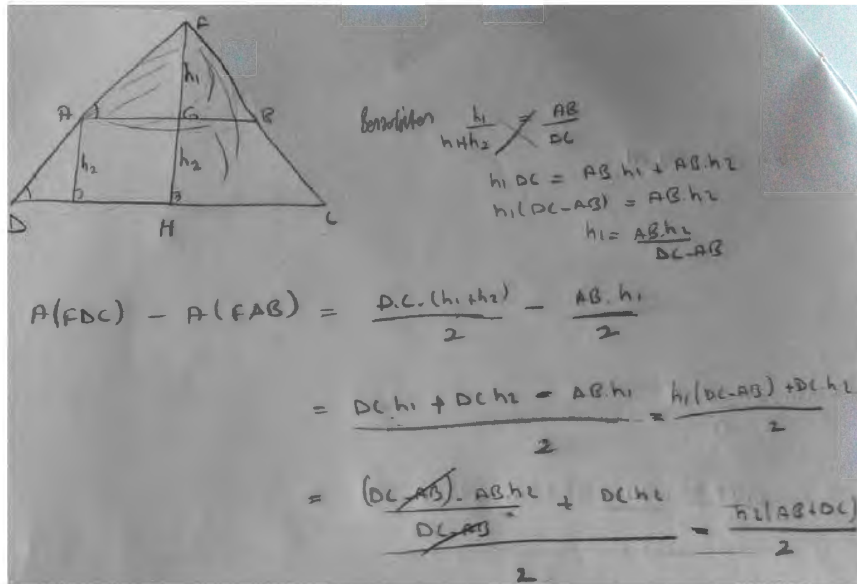 F
h₁
A G B
h₂ h₂
D H C
Benzerlikten h₁/(h₁+h₂) = AB/DC
h₁ DC = AB.h₁ + AB.h₂
h₁(DC-AB) = AB.h₂
h₁ = AB.h₂/(DC-AB)
A(FDC) - A(FAB) = D.C.(h₁+h₂)/2 - AB.h₁/2
= (DC.h₁ + DC h₂ - AB.h₁)/2 = (h₁(DC-AB) + DC.h₂)/2
= ((DC-AB).AB.h₂/(DC-AB) + DC.h₂)/2 = h₂(AB+DC)/2